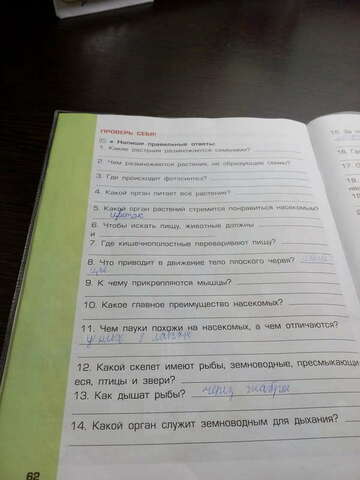 ПРОВЕРЬ СЕБЯ!
Напиши правильные ответы:
1. Какие растения размножаются семенами?
2. Чем размножаются растения, не образующие семян?
3. Где происходит фотосинтез?
4. Какой орган питает все растения?
5. Какой орган растений стремится понравиться насекомому?
цветок
6. Чтобы искать пищу, животные должны
и
7. Где кишечнополостные переваривают пищу?
8. Что приводит в движение тело плоского червя?
9. К чему прикрепляются мышцы?
10. Какое главное преимущество насекомых?
11. Чем пауки похожи на насекомых, а чем отличаются?
у них 8
12. Какой скелет имеют рыбы, земноводные, пресмыкающи
еся, птицы и звери?
13. Как дышат рыбы? через жабры
14. Какой орган служит земноводным для дыхания?
62
15.
16.
17.
18.
19.